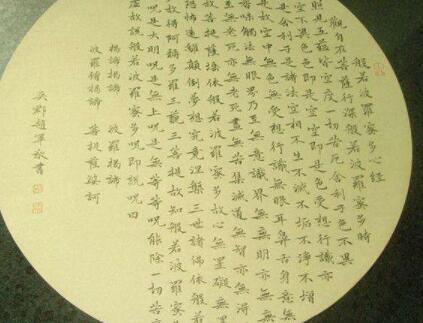 般若波羅蜜多心經
觀自在菩薩行深般若波羅蜜多時
照見五蘊皆空度一切苦厄舍利子色不異
空空不異色色即是空空即是色受想行識亦
是舍利子是諸法空相不生不滅不垢不淨不增
是故空中無色無受想行識無眼耳鼻舌身意無
香味觸法無眼界乃至無意識界無無明亦無無
至無老死亦無老死盡無苦集滅道無智亦無得
故菩提薩埵依般若波羅蜜多故心無罣礙無罣
恐怖遠離顛倒夢想究竟涅槃三世諸佛依般若
故得阿耨多羅三藐三菩提故知般若波羅蜜多
呪是大明呪是無上呪是無等等呪能除一切苦
虛故說般若波羅蜜多呪即說呪曰
揭諦揭諦 波羅揭諦
波羅僧揭諦 菩提薩婆訶
吳郡趙軍敬書